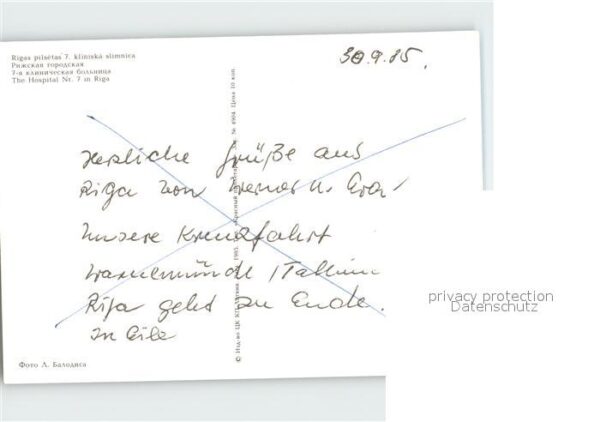 Rīgas pilsētas 7. klīniskā slimnīca
Рижская городская
7-я клиническая больница
The Hospital Nr. 7 in Riga
30.9.85.
Herzliche Grüße aus
Riga von Werner u. Eva
Unsere Kreuzfahrt
Warnemünde, Tallinn
Riga geht zu Ende.
In Eile
Фото Л. Балодиса
privacy protection
Datenschutz